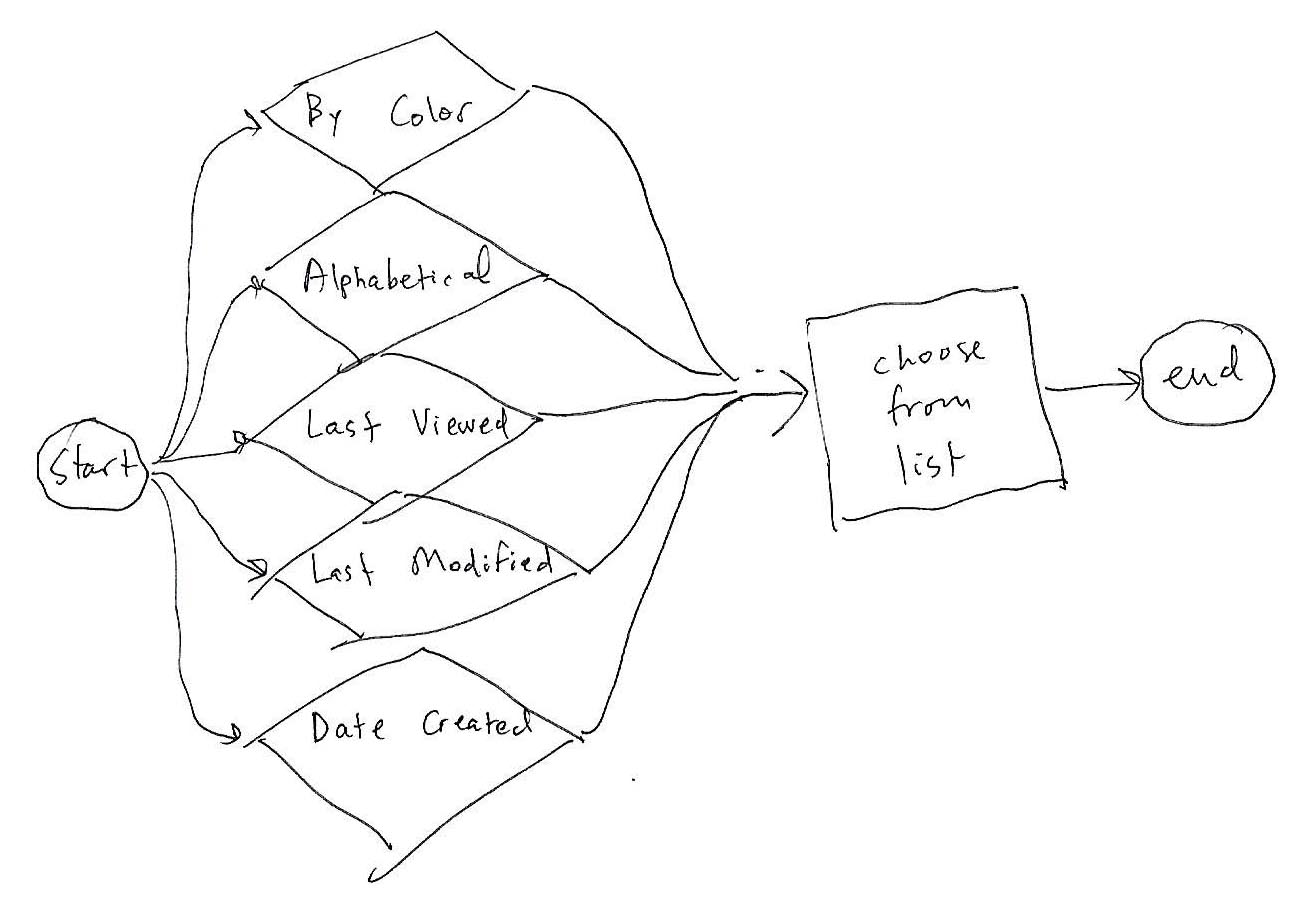 By Color
Alphabetical
Last Viewed
Start
Last Modified
Date Created
choose
from
list
end